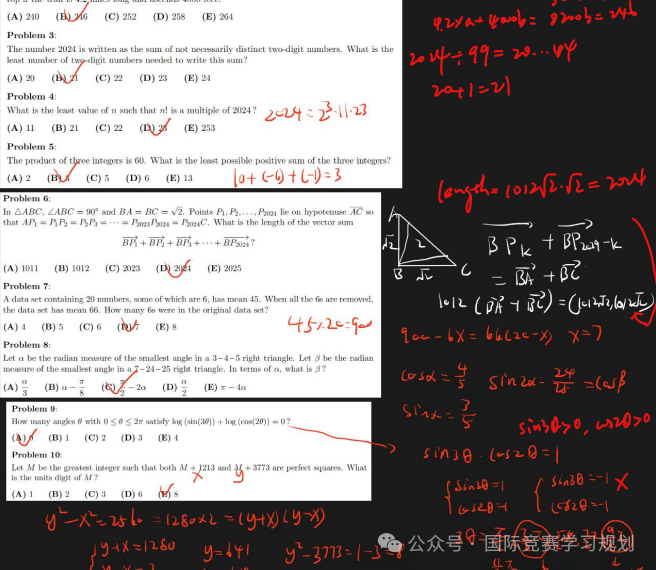 (A) 240 (B) 246 (C) 252 (D) 258 (E) 264
Problem 3:
The number 2024 is written as the sum of not necessarily distinct two-digit numbers. What is the
least number of two-digit numbers needed to write this sum?
(A) 20 (B) 21 (C) 22 (D) 23 (E) 24
Problem 4:
What is the least value of n such that n! is a multiple of 2024?
2024 = 2³·11·23
(A) 11 (B) 21 (C) 22 (D) 23 (E) 253
Problem 5:
The product of three integers is 60. What is the least possible positive sum of the three integers?
(A) 2 (B) 3 (C) 5 (D) 6 (E) 13
10+(-6)+(-1)=3
Problem 6:
In △ABC, ∠ABC = 90° and BA = BC = √2. Points P₁, P₂, . . . , P₂₀₂₄ lie on hypotenuse AC so
that AP₁ = P₁P₂ = P₂P₃ = · · · = P₂₀₂₃P₂₀₂₄ = P₂₀₂₄C. What is the length of the vector sum
BP₁ + BP₂ + BP₃ + · · · + BP₂₀₂₄?
(A) 1011 (B) 1012 (C) 2023 (D) 2024 (E) 2025
Problem 7:
A data set containing 20 numbers, some of which are 6, has mean 45. When all the 6s are removed,
the data set has mean 66. How many 6s were in the original data set?
(A) 4 (B) 5 (C) 6 (D) 7 (E) 8
45×20=900
Problem 8:
Let α be the radian measure of the smallest angle in a 3−4−5 right triangle. Let β be the radian
measure of the smallest angle in a 7−24−25 right triangle. In terms of α, what is β?
(A) α/3 (B) α − π/8 (C) π/2 − 2α (D) α/2 (E) π − 4α
Problem 9:
How many angles θ with 0 ≤ θ ≤ 2π satisfy log (sin(3θ)) + log (cos(2θ)) = 0?
(A) 0 (B) 1 (C) 2 (D) 3 (E) 4
Problem 10:
Let M be the greatest integer such that both M + 1213 and M + 3773 are perfect squares. What
is the units digit of M?
x y
(A) 1 (B) 2 (C) 3 (D) 6 (E) 8
y²-x²=2560=1280×2=(y+x)(y-x)
y+x=1280 y=641 y²-3773=1-3=8
2024÷99=20...44
20+1=21
length=1012√2·√2=2024
A √2 2 B √2 C
BPₖ + BP₂₀₂₅₋ₖ
= BA + BC
1012 (BA + BC) = (1012√2, 1012√2)
900-6x=66(20-x) x=7
cosα=4/5 sin2α=24/25=cosβ
sinα=3/5
sin3θ>0, cos2θ>0
sin3θ·cos2θ=1
sin3θ=1 sin3θ=-1 X
cos2θ=1 cos2θ=-1
公众号·国际竞赛学习规划